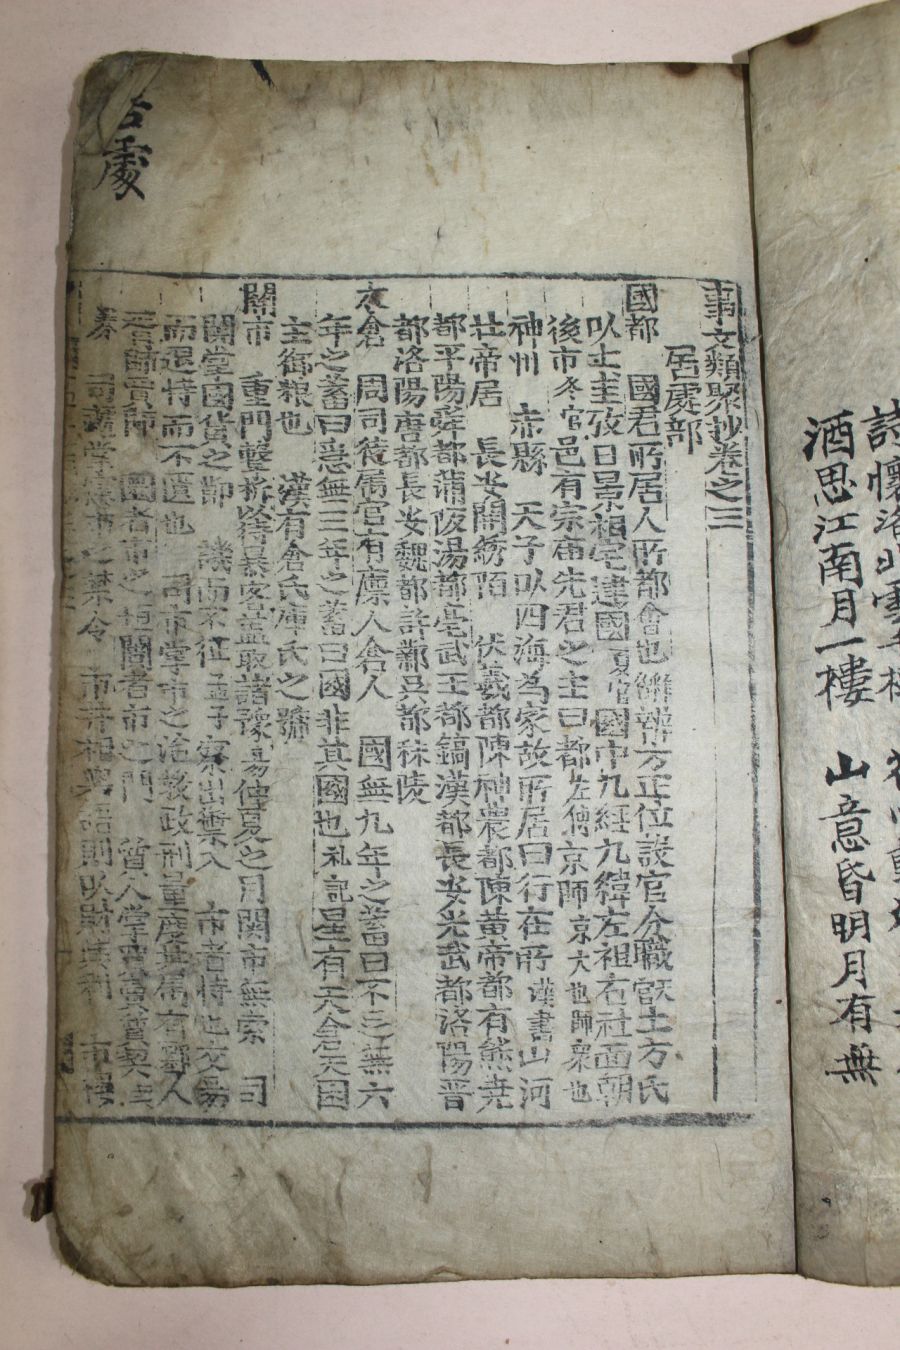 詩懷洛北雲千樹
酒思江南月一樓　山意昏明月有無
居處
事文類聚抄卷之三
居處部
國都　國君所居人所都會也　辨方正位設官分職　土方氏
以土圭攷日景相宅建國夏官　國中九經九緯左祖右社面朝
後市冬官邑有宗庙先君之主曰都左傳京師京大也師衆也
神州　赤縣　天子以四海為家故所居曰行在所漢書山河
壯帝居　長安開綉陌　伏羲都陳神農都陳黃帝都有熊堯
都平陽舜都蒲阪湯都亳武王都鎬漢都長安光武都洛陽晋
都洛陽唐都長安魏都許鄴吳都秣陵
太倉　周司徒属官有廪人倉人　國無九年之蓄曰不足無六
年之蓄曰急無三年之蓄曰國非其國也礼記星有天倉天囷
主御粮也　漢有倉氏庫氏之號
關市　重門擊柝以待暴客盖取諸豫易仲夏之月関市無索　司
関掌國貨之節　譏而不征孟子察出禦入　市者恃也交易
而退恃而不匱也　司市掌市之治教政刑量度其属有
師賈師　圜者市之垣闠者市之門　質人掌
券　司虣掌憲市之禁令　市井相與語則以財